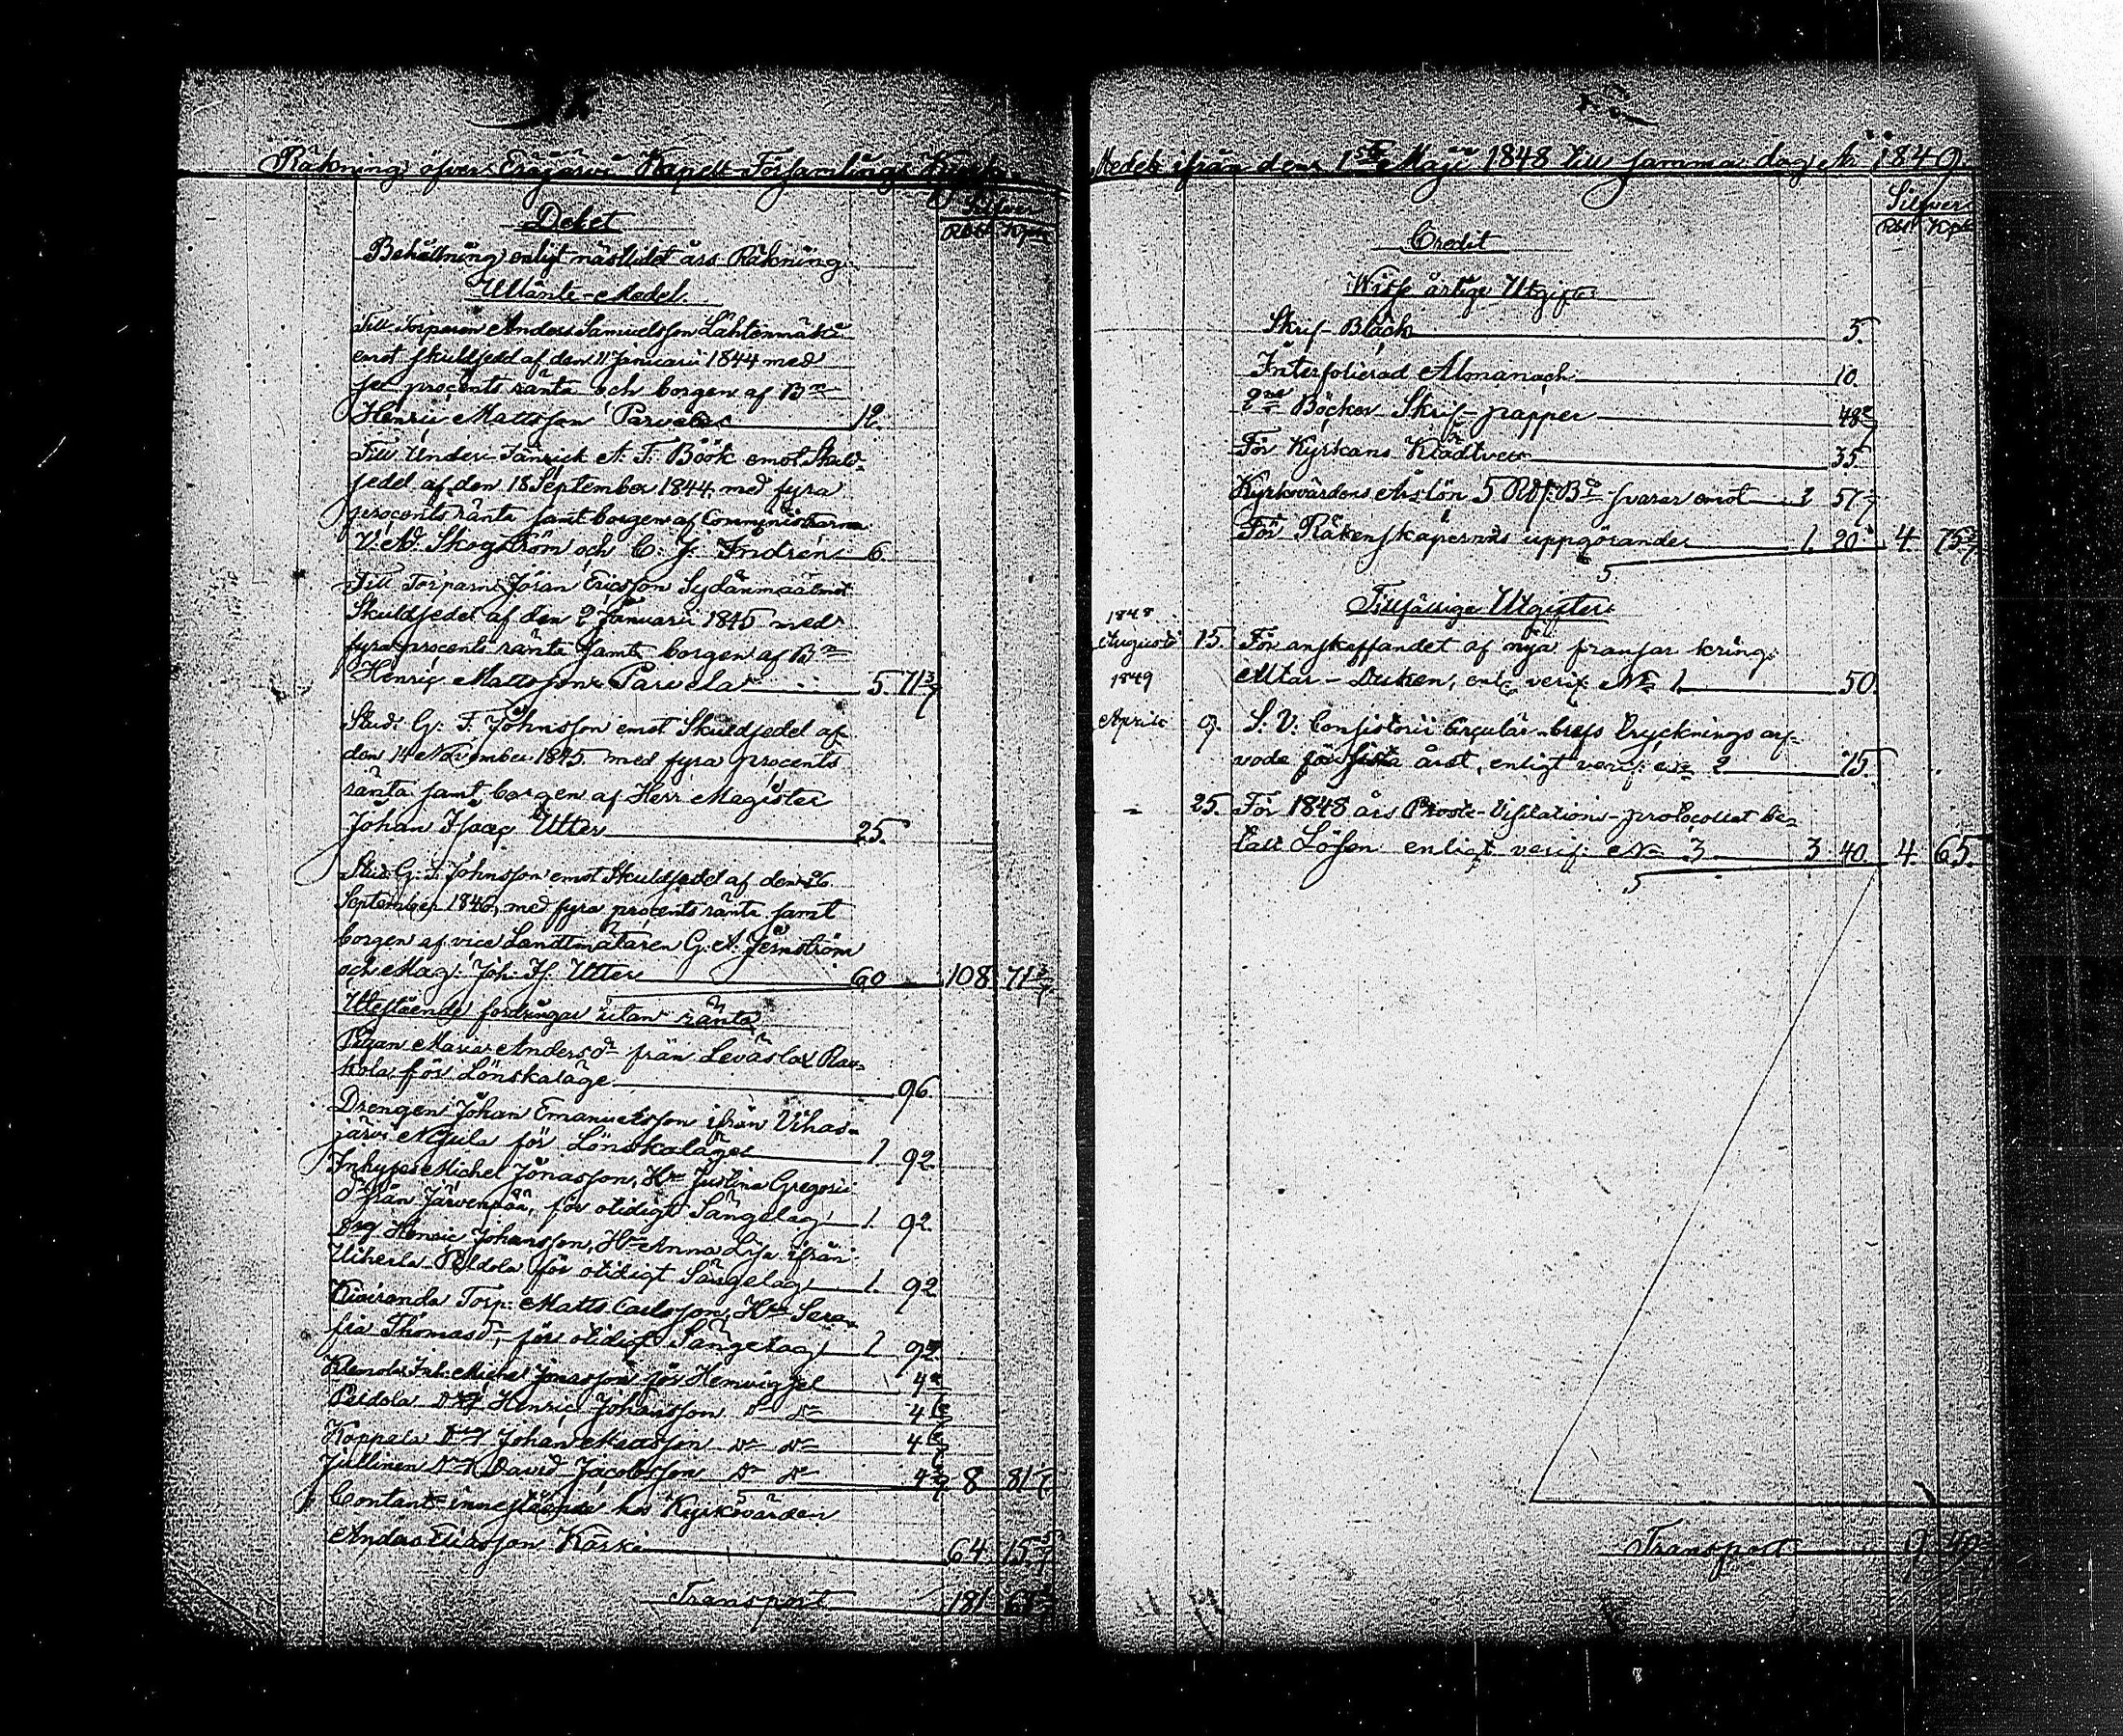 Räkning öfver Eräjärvi Kapell-Församlings Kyrck
Debet
Silfver
Rbl Kpk
Behållning enligt nästlidet års Räkning
Utlånte-Medel.
Till Torparen Anders Samuelsson Lähtenmäki
emot skuldsedel af den 11 Januarii 1844 med
sex procents ränta och borgen af Bn
Henric Mattsson Parvela 12.
Till Under-Fänrick A. F. Böök emot Skuld-
sedel af den 18 September 1844 med fyra
procents ränta samt borgen af Comministrarne
V. Ad. Skogström och C. J. Indrén 6.
Till Torparn Jöran Ericsson Sydänmaa emot
Skuldsedel af den 2 Januarii 1845 med
fyra procents ränta samt borgen af Bn
Henric Mattsson Parvela 5. 71 3/7
Stud. G. F. Johnsson emot Skuldsedel af
den 14 November 1845 med fyra procents
ränta samt borgen af Herr Magister
Johan Isaac Utter 25.
Stud. G. F. Johnsson emot Skuldsedel af den 26
September 1846, med fyra procents ränta samt
borgen af vice Landtmätaren G. A. Jernström
och Mag. Joh. Is. Utter 60 108 71 3/7
Utestående fordringar utan ränta
Pigan Maria Andersdr från Leväslax Rau-
hola för Lönskaläge 96
Drengen Johan Emanuelsson ifrån Vihas-
järvi för Lönskaläge 1. 92
Inhyses Michel Jönasson, Hu Justina Gregorii
dr från Järvenpää, för otidigt Sängelag 1. 92.
Drg Henric Johansson, Hu Anna Lisa ifrån
Uiherla Peldola för otidigt Sängelag 1. 92
Kuiranda Torp: Matts Carlsson, Hu Sera-
fia Thomasdr, för otidigt Sängelag 1 92
Inh: Michel Jonasson för Hemvigsel 4
Peldola Henric Johansson do do 4
Koppala Johan Mattsson do do 4
Jullinen David Jacobsson do do 4 2/7 8 81 1/7
Contant innestående hos Kyrkovärden
Anders Eliasson Kärki 64 15 5/7
Transport 181
Medel ifrån den 1sta Maji 1848 till samma dag År 1849.
Silfver
Rbl Kpk
Credit
Wisse årlige Utgifter
Skrif-Bläck 5.
Interfolierad Almanach 10
2ne Böcker Skrif-papper 48
För Kyrkans Klädtvätt 35
Kyrkovärdens Årslön 5 Rdr Bo svarar emot 57
För Räkenskapernas uppgörande 1. 20 4. 75
Tillfällige Utgifter
1848
Augusti 15. För anskaffandet af nya fransar kring
1849
Altar-Duken, enl. verif. No 1 50.
Aprill 9. S. V. Consistorii Circulär-brefs tryckningsar-
vode för sista året, enligt verif: No 2 75.
- 25. För 1848 års Prosts-Visitations-protocollet be-
tald Lösen enligt verif: No 3 3 40. 4. 65.
Transport 9. 40